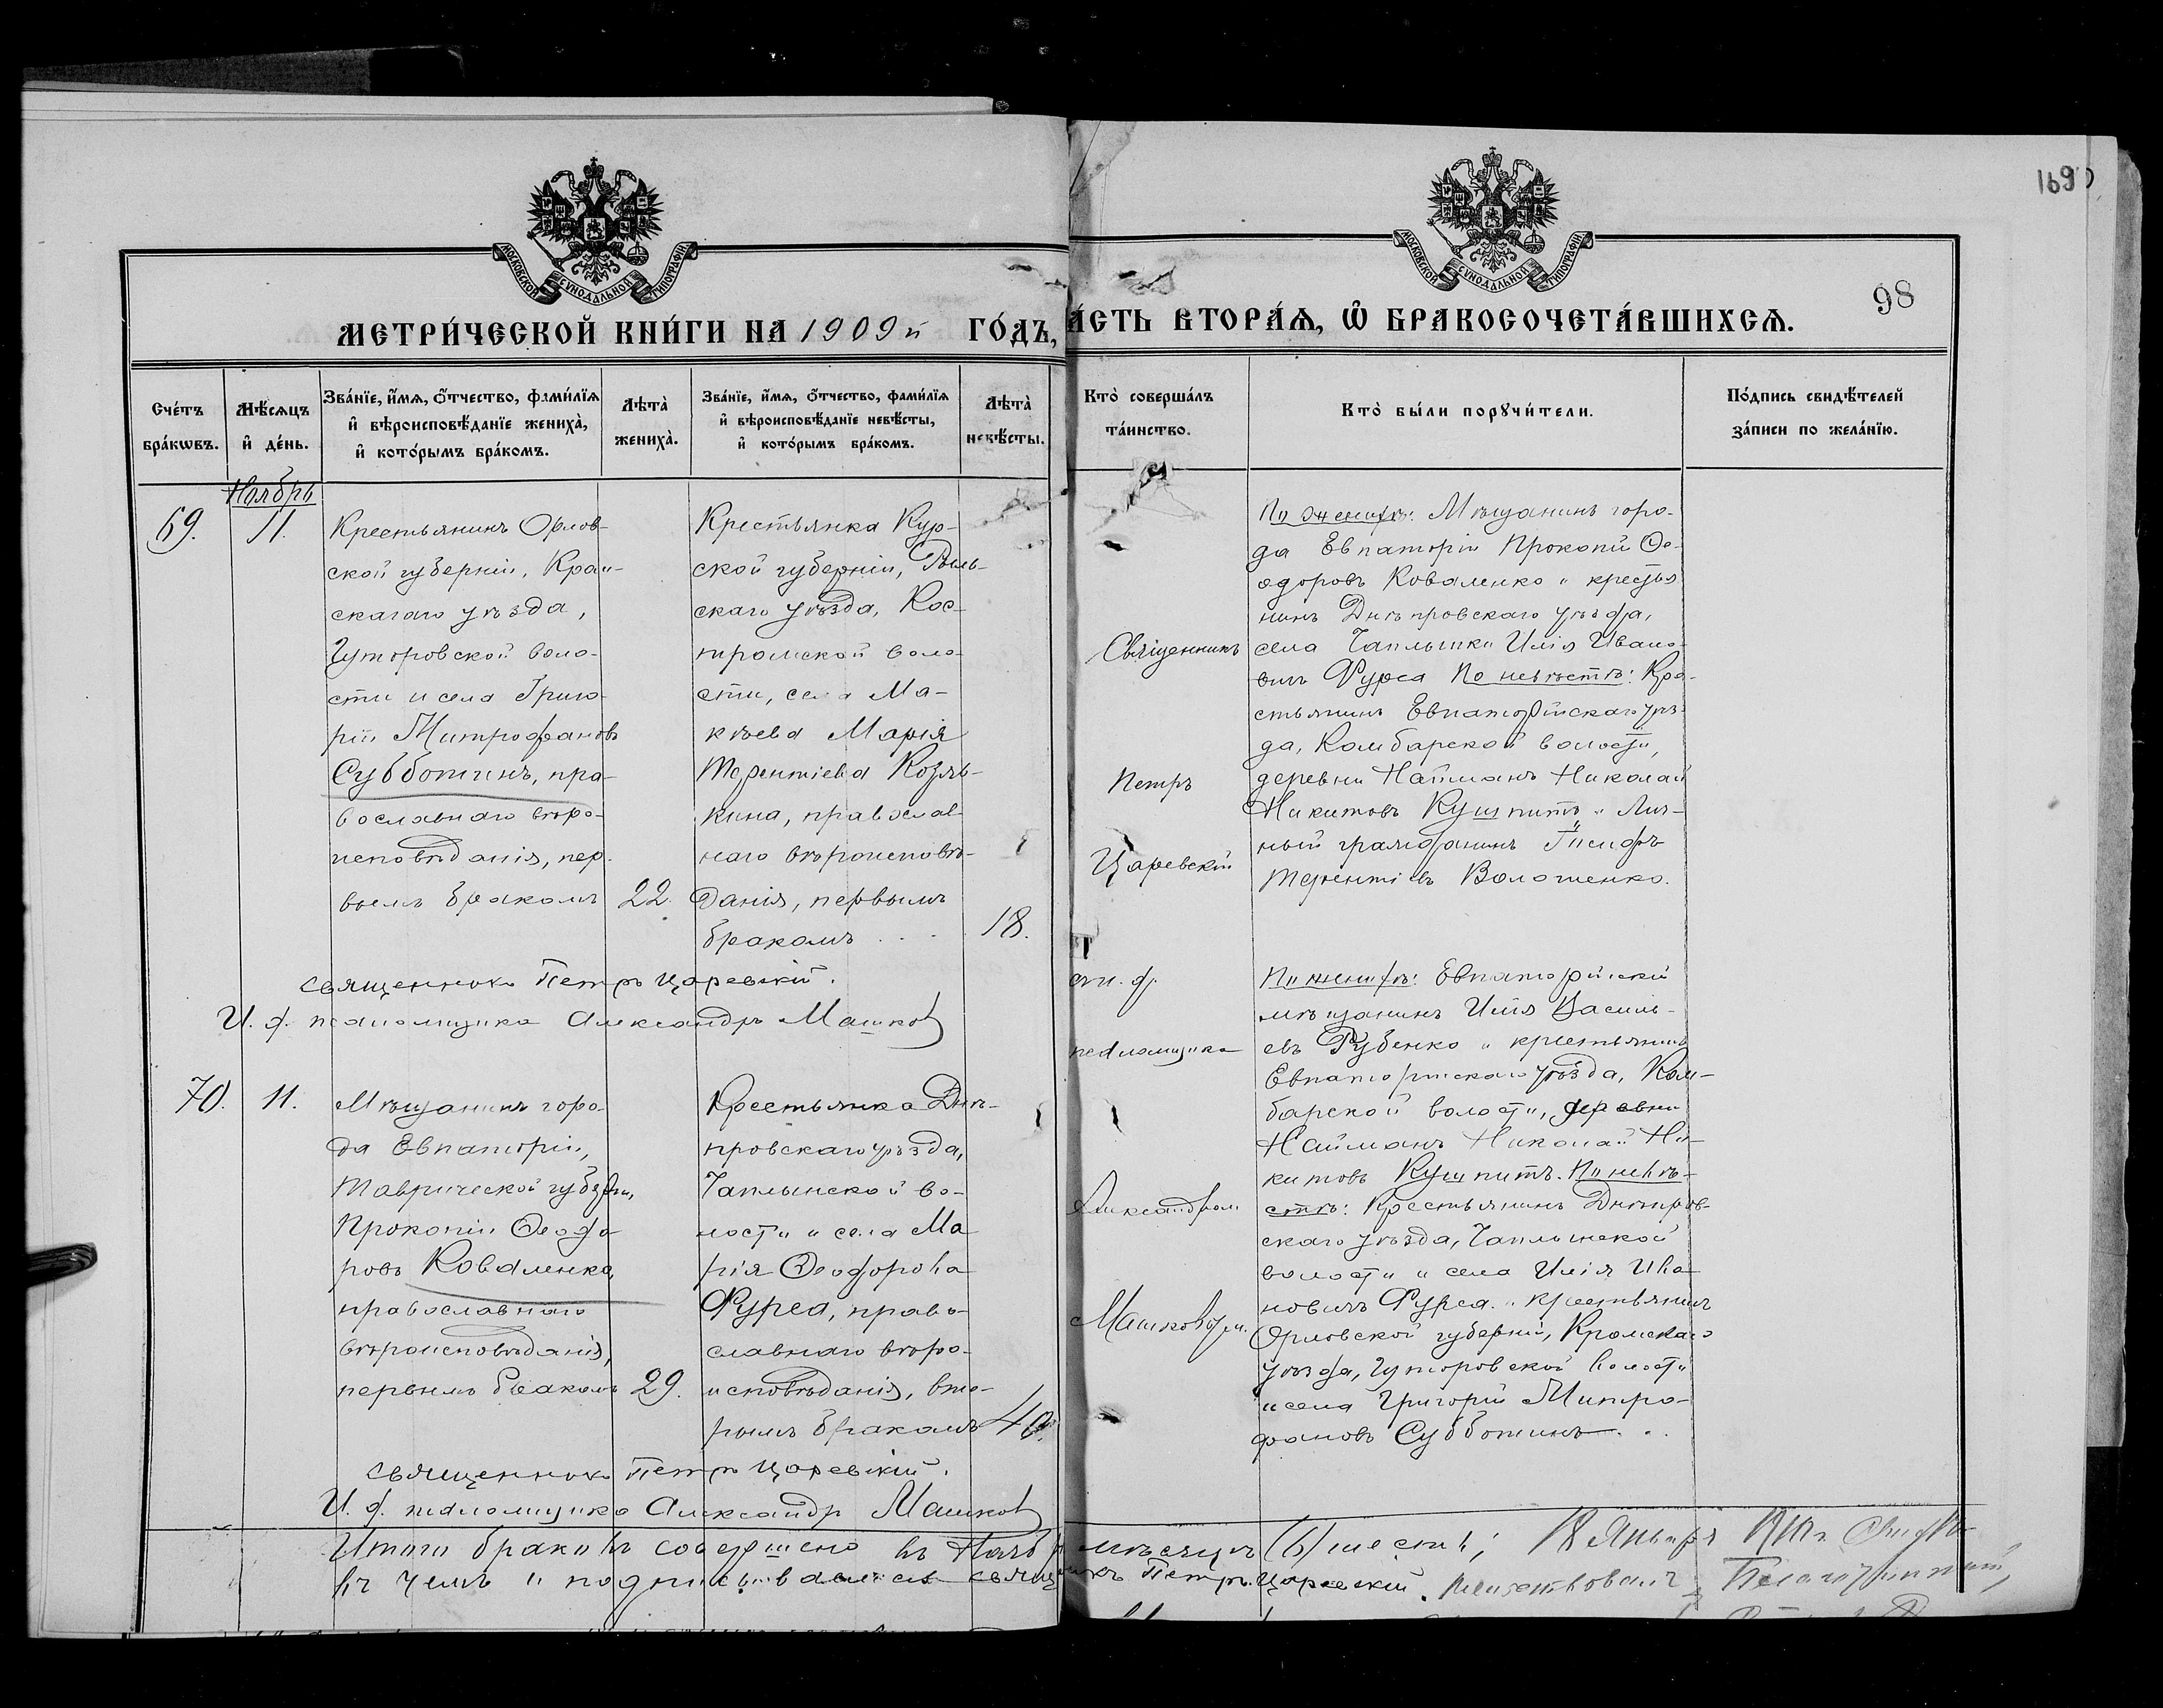 1690
98
МОСКОВСКОЙ СУНОДАЛЬНОЙ ТИПОГРАФІИ
МОСКОВСКОЙ СУНОДАЛЬНОЙ ТИПОГРАФІИ
МЕТРИ́ЧЕСКОЙ КНИ́ГИ НА 1909й ГО́ДЪ,
А́СТЬ ВТОРА́Ѧ, Ѿ БРАКОСОЧЕТА́ВШИХСѦ.
Сче́тъ
бра́кѡвъ.
Мѣ́сѧцъ
и҆ де́нь.
Зва́нїе, и҆́мѧ, о҆́тчество, фами́лїѧ
и҆ вѣроисповѣ́данїе жениха̀,
и҆ кото́рымъ бра́комъ.
Лѣта̀
жениха̀.
Зва́нїе, и҆́мѧ, о҆́тчество, фами́лїѧ
и҆ вѣроисповѣ́данїе невѣ́сты,
и҆ кото́рымъ бра́комъ.
Лѣта̀
невѣ́сты.
Кто̀ соверша́лъ
та́инство.
Кто̀ бы́ли порꙋчи́тели.
По́дпись свидѣ́телей
за́писи по жела́нїю.
Ноябрь
69.
11.
Крестьянинъ Орлов-
ской губерніи, Кром-
скагаго уѣзда,
Гуторовской воло-
сти и села Григо-
рій Митрофановъ
Субботинъ, пра-
вославнаго вѣро-
исповѣданія, пер-
вымъ бракомъ
22.
Крестьянка Кур-
ской губерніи, Рыль-
скаго уѣзда, Кос-
тромской воло-
сти, села Ма-
кѣева Марія
Терентіева Козль-
кина, православ-
наго вѣроисповѣ-
данія, первымъ
бракомъ . . .
18.
Священникъ
Петръ
Царевскій
По женихѣ: Мѣщанинъ горо-
да Евпаторіи Прокопій Ѳе-
одоровъ Коваленко и крестья
нинъ Днѣпровскаго уѣзда,
села Чаплынки Илія Ивано-
вичъ Фурса По невѣстѣ: Кре-
стьянинъ Евпаторійскаго уѣз-
да, Камбарской волости,
деревни Найманъ Николай
Никитовъ Кушпитъ и Лич-
ный гражданинъ Іосифъ
Терентіевъ Волошенко.
Священникъ Петръ Царевскій.
И. д. псаломщика Александръ Машков
70.
11.
Мѣщанинъ горо-
да Евпаторіи,
Таврической губерніи,
Прокопій Ѳеодо-
ровъ Коваленко,
православнаго
вѣроисповѣданія,
первымъ бракомъ
29.
Крестьянка Днѣ-
провскаго уѣзда,
Чаплынской во-
лости и села Ма
рія Ѳеодорова
Фурса, право-
славнаго вѣро-
исповѣданія, вто-
рымъ бракомъ
40.
съ и. д.
псаломщика
Александромъ
Машковымъ.
По женихѣ: Евпаторійскій
мѣщанинъ Илія Василь-
евъ Рубенко и крестьянинъ
Евпаторійскаго уѣзда, Кам-
барской волости, деревни
Найманъ Николай Ни-
китовъ Кушпитъ. По невѣ-
стѣ: Крестьянинъ Днѣпров-
скаго уѣзда, Чаплынской
волости и села Илія Ива-
новичъ Фурса и крестьянинъ
Орловской губерніи, Кромскаго
уѣзда, Гуторовской волости
и села Григорій Митро-
фановъ Субботинъ . .
Священникъ Петръ Царевскій.
И. д. псаломщика Александр Машков
Итого браковъ совершено въ Ноябрѣ мѣсяцѣ (6) шесть;
въ чемъ и подписываемся священникъ Петръ Царевскій.